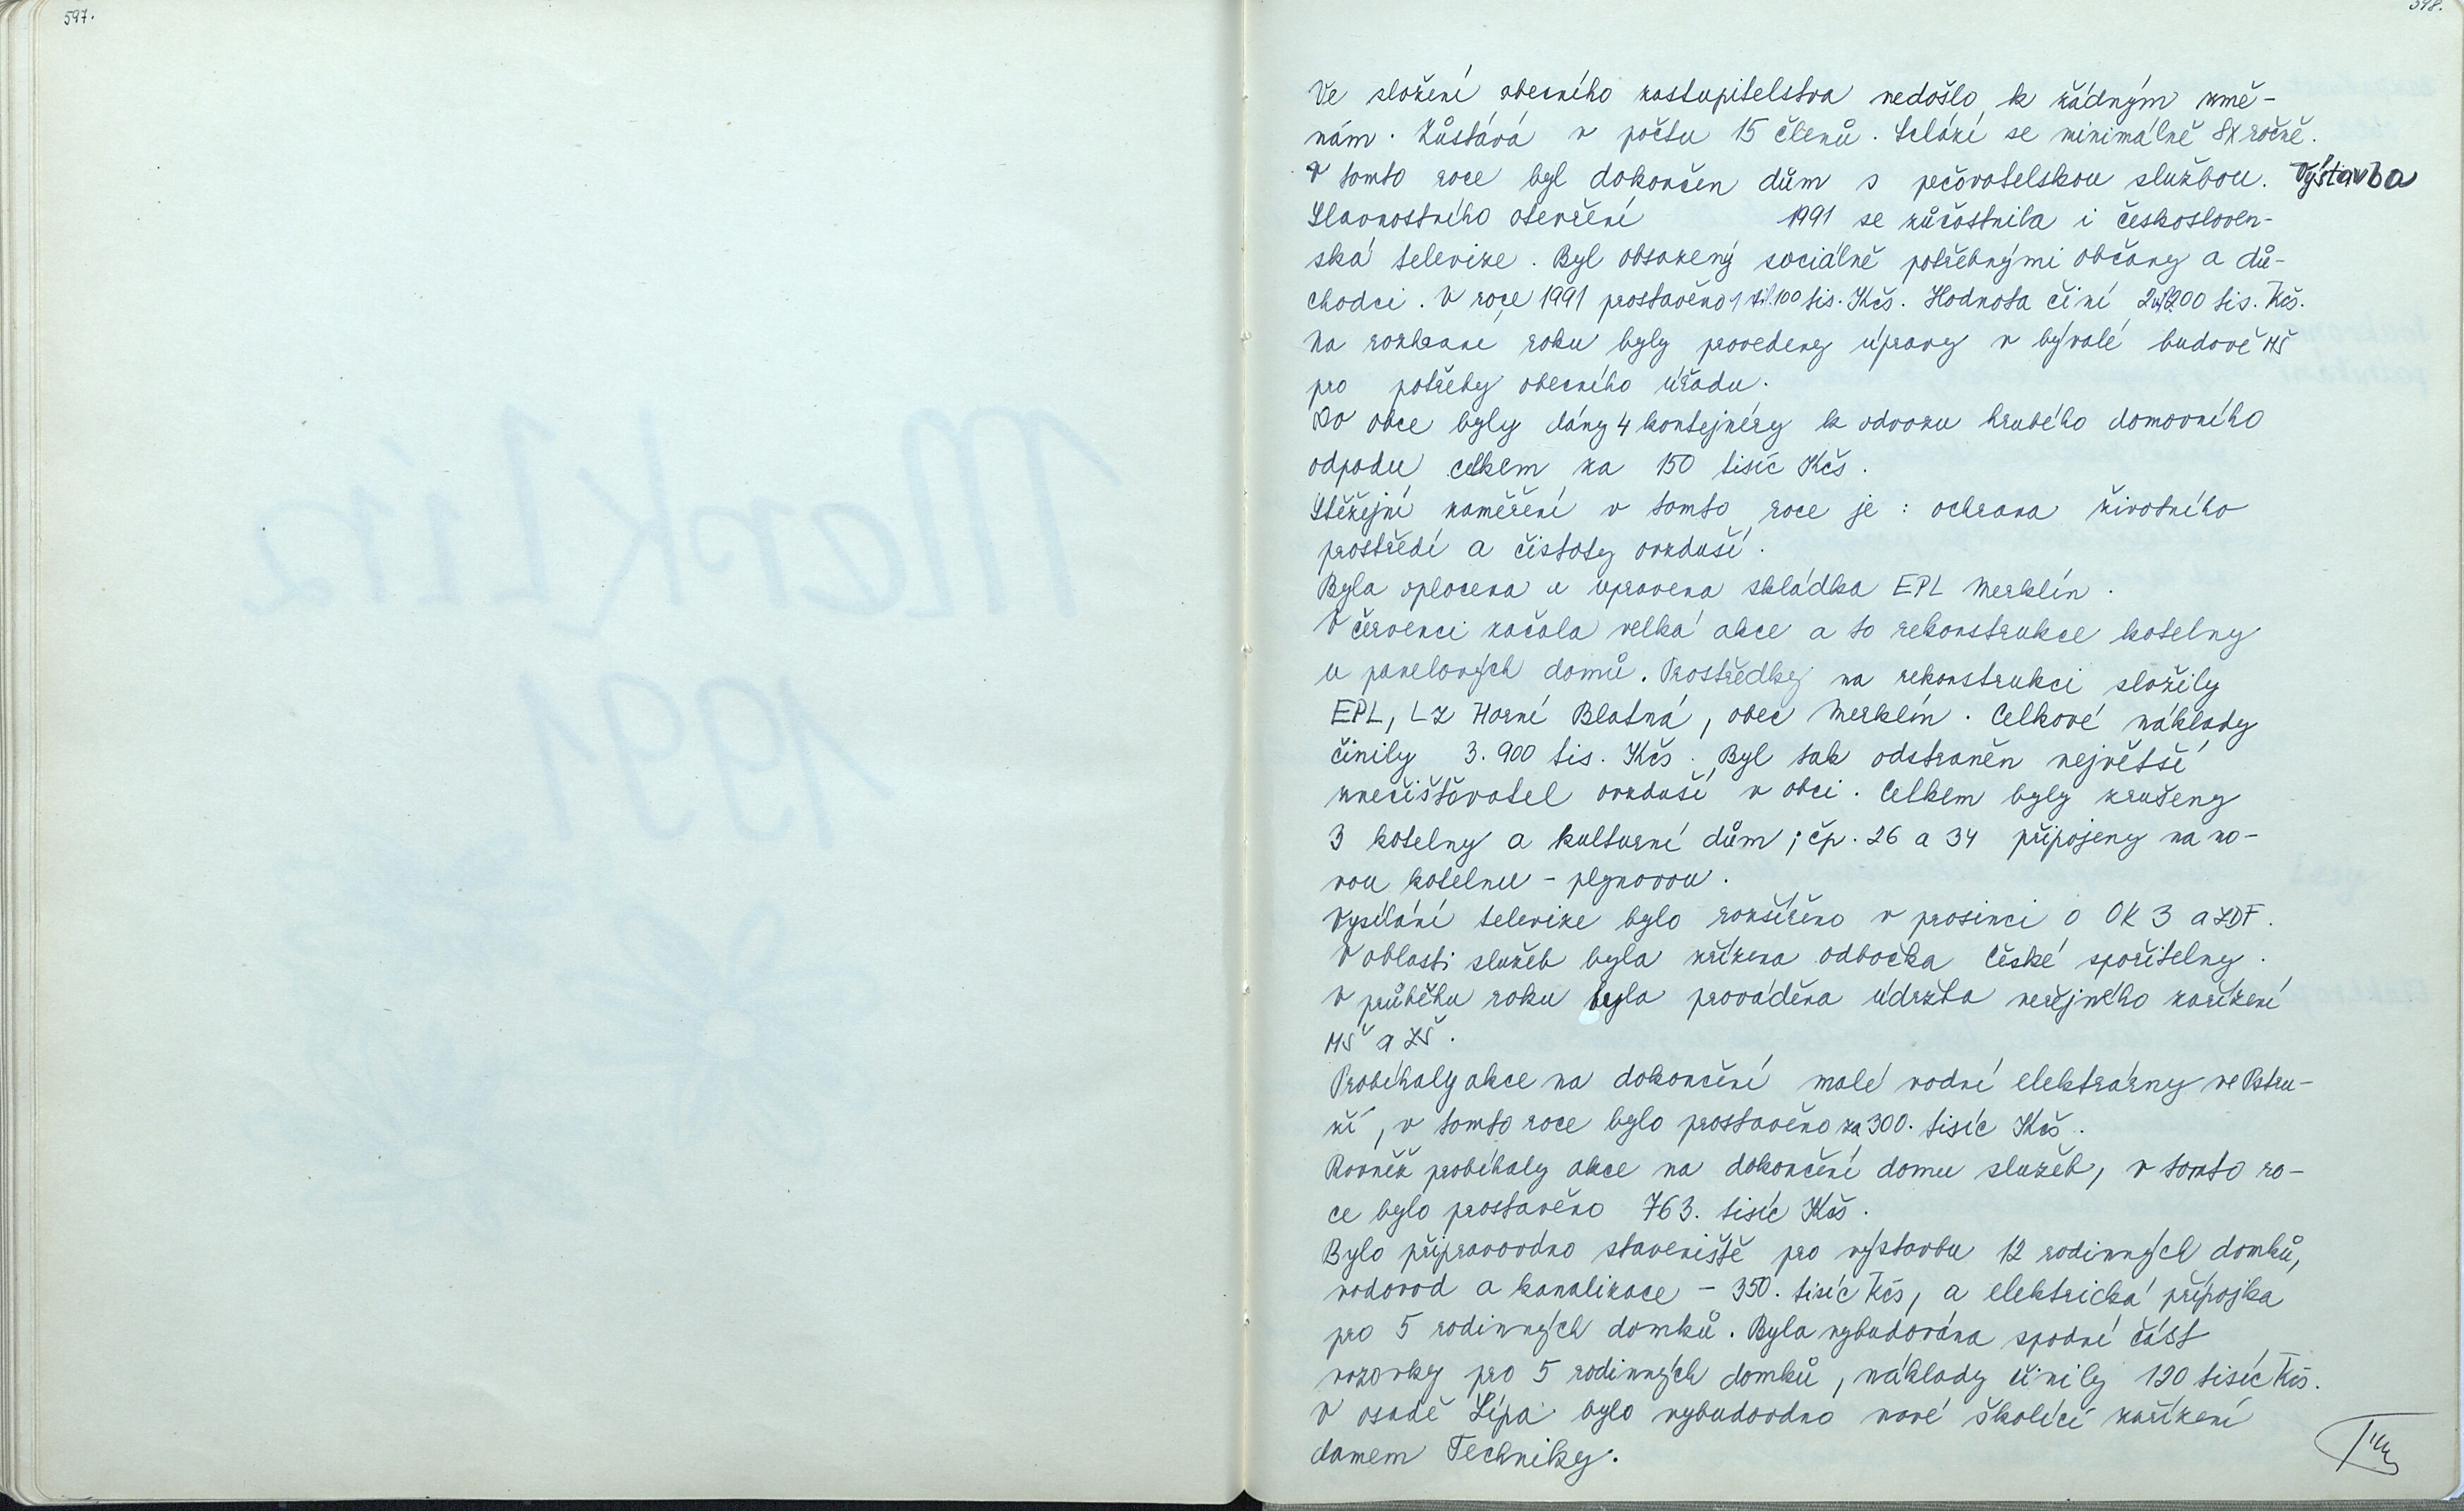 597.
598.
Ve složení obecního zastupitelstva nedošlo k žádným změ-
nám. Zůstává v počtu 15 členů. Schází se minimálně 8x ročně.
V tomto roce byl dokončen dům s pečovatelskou službou. Výstavba
Slavnostního otevření 1991 se zůčastnila i českosloven-
ská televize. Byl obsazený sociálně potřebnými občany a dů-
chodci. V roce 1991 prostavěno 1 mil. 100 tis. Kčs. Hodnota činí 2 mil. 200 tis. Kčs.
Na rozhraní roku byly provedeny úpravy v bývalé budově MŠ
pro potřeby obecního úřadu.
Do obce byly dány 4 kontejnéry k odvozu hrubého domovního
odpadu celkem za 150 tisíc Kčs.
Stěžejní zaměření v tomto roce je: ochrana životního
prostředí a čistoty ovzduší.
Byla oplocena a upravena skládka EPL Merklín.
V červenci začala velká akce a to rekonstrukce kotelny
u panelových domů. Prostředky na rekonstrukci složily
EPL, LZ Horní Blatná, obec Merklín. Celkové náklady
činily 3.900 tis. Kčs. Byl tak odstraněn největší
znečišťovatel ovzduší v obci. Celkem byly zrušeny
3 kotelny a kulturní dům; čp. 26 a 34 připojeny na no-
vou kotelnu - plynovou.
Vysílání televize bylo rozšířeno v prosinci o OK 3 a ZDF.
V oblasti služeb byla zřízena odbočka České spořitelny.
V průběhu roku byla prováděna údržba veřejného zařízení
MŠ a ZŠ.
Probíhaly akce na dokončení malé vodní elektrárny ve Pstru-
ží, v tomto roce bylo prostavěno za 300. tisíc Kčs.
Rovněž probíhaly akce na dokončení domu služeb, v tomto ro-
ce bylo prostavěno 763. tisíc Kčs.
Bylo připravováno staveniště pro výstavbu 12 rodinných domků,
vodovod a kanalizace - 350. tisíc Kčs, a elektrická přípojka
pro 5 rodinných domků. Byla vybudována spodní část
vozovky pro 5 rodinných domků, náklady činily 120 tisíc Kčs.
V osadě Lípa bylo vybudováno nové školící zařízení
domem Techniky.